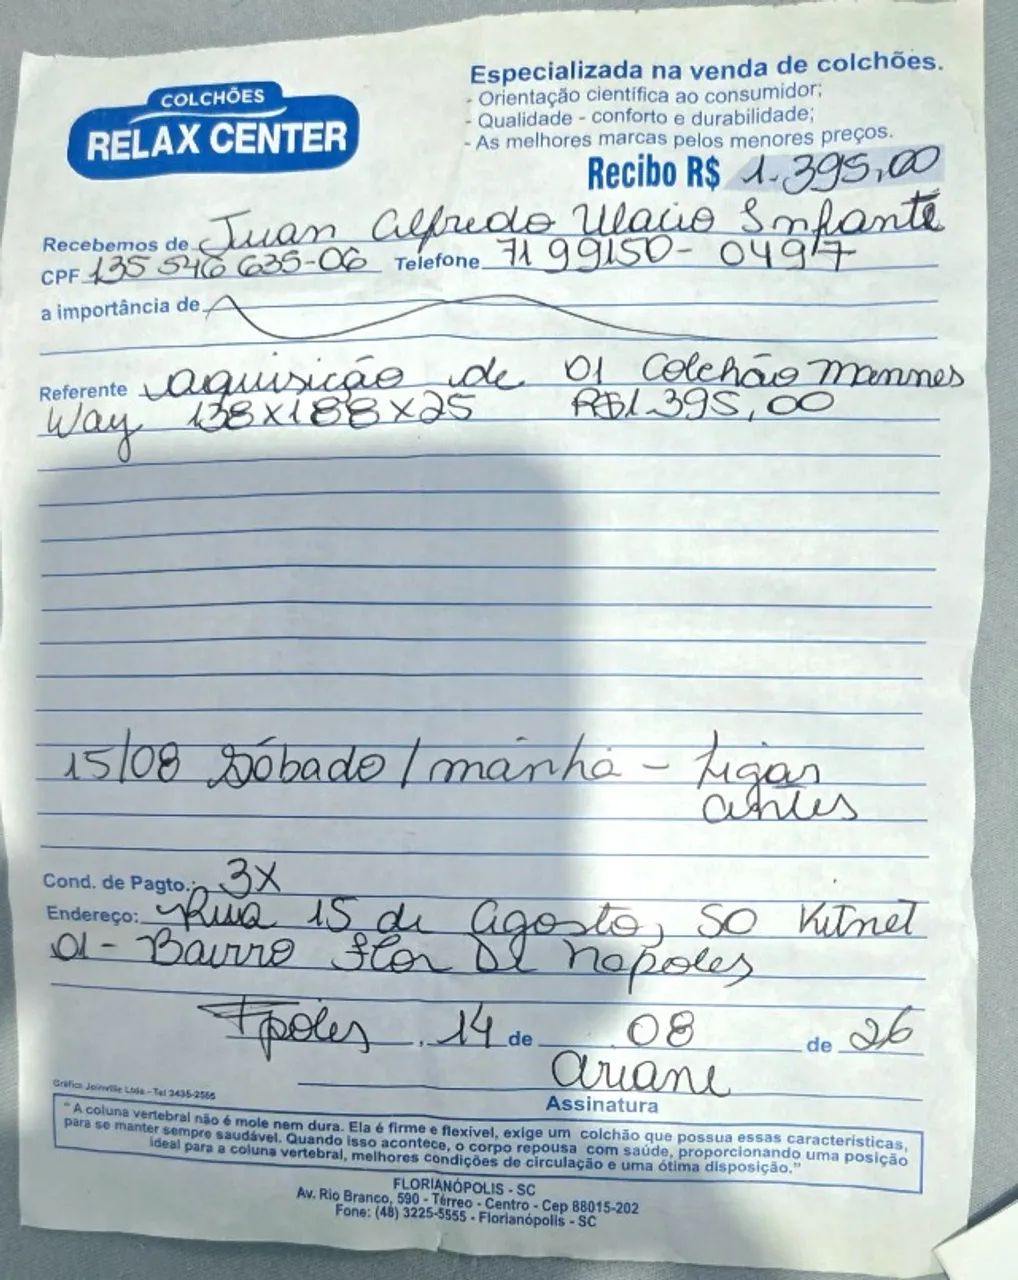 COLCHÕES
RELAX CENTER
Especializada na venda de colchões.
- Orientação científica ao consumidor;
- Qualidade - conforto e durabilidade;
- As melhores marcas pelos menores preços.
Recibo R$ 1.395,00
Recebemos de Juan Alfredo Ulacio Infante
CPF 135 546 635-06 Telefone 71 99150-0497
a importância de
Referente aquisição de 01 Colchão Mannes
Way 138x188x25 R$1.395,00
15/08 Sábado / manhã - Ligar
antes
Cond. de Pagto.: 3X
Endereço: Rua 15 de Agosto, 50 Kitnet
01 - Bairro Flor De Napoles
Fpoles, 14 de 08 de 26
Ariane
Assinatura
Gráfica Joinville Ltda - Tel 3435-2555
“A coluna vertebral não é mole nem dura. Ela é firme e flexível, exige um colchão que possua essas características,
para se manter sempre saudável. Quando isso acontece, o corpo repousa com saúde, proporcionando uma posição
ideal para a coluna vertebral, melhores condições de circulação e uma ótima disposição.”
FLORIANÓPOLIS - SC
Av. Rio Branco, 590 - Térreo - Centro - Cep 88015-202
Fone: (48) 3225-5555 - Florianópolis - SC